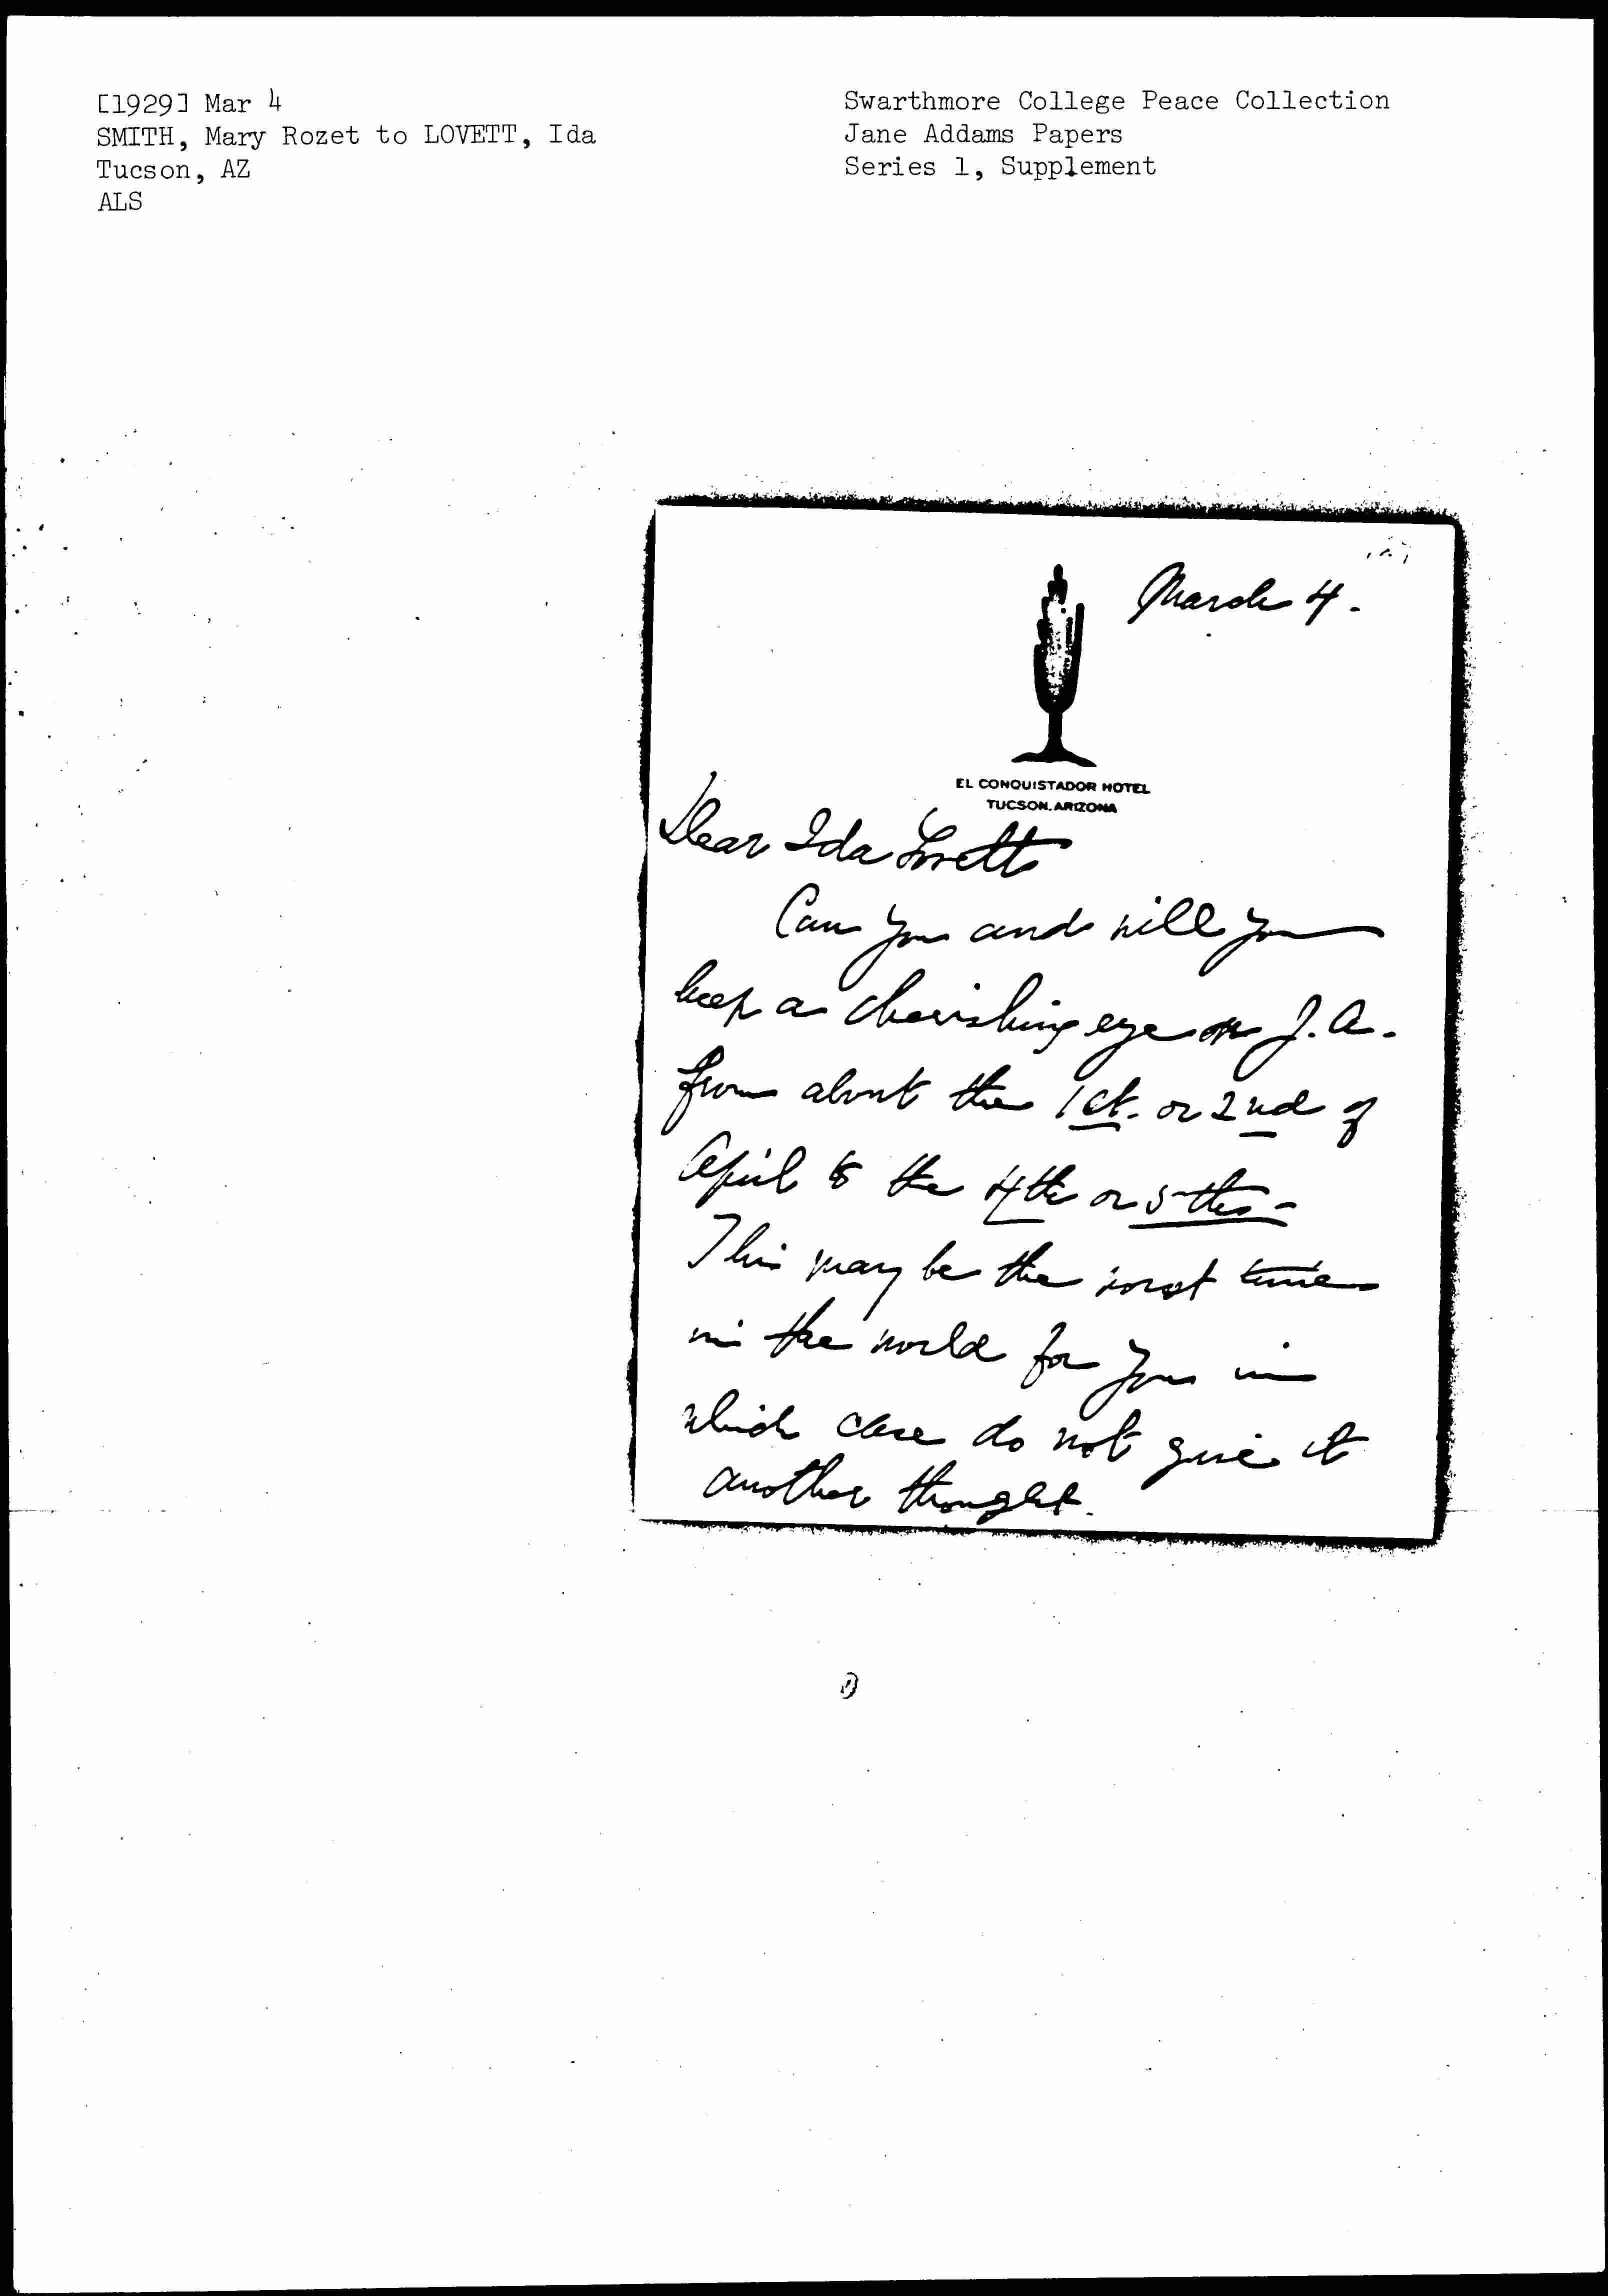 [1929] Mar 4
SMITH, Mary Rozet to LOVETT, Ida
Tucson, AZ
ALS
Swarthmore College Peace Collection
Jane Addams Papers
Series 1, Supplement
March 4.
EL CONQUISTADOR HOTEL
TUCSON, ARIZONA
Dear Ida Lovett
Can you and will you
keep a cherishing eye on J. A.
from about the 1st. or 2nd of
April to the 4th or 5th -
This may be the worst time
in the world for you in
which case do not give it
another thought.